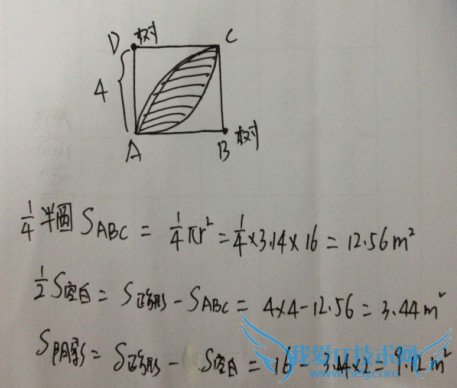 D 树 C
4
A B 树
1/4 半圆 S ABC = 1/4 πr² = 1/4 × 3.14 × 16 = 12.56 m²
1/2 S空白 = S正方形 - S ABC = 4×4 - 12.56 = 3.44 m²
S阴影 = S正方形 - S空白 = 16 - 3.44×2 = 9.12 m²